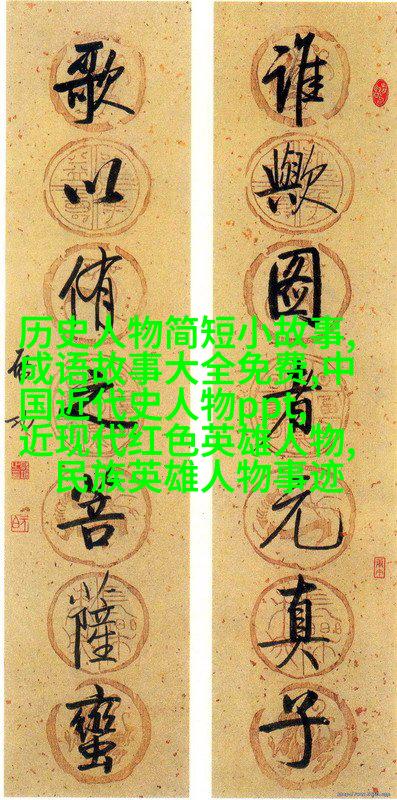 谁歟图者元真子
歌以侑之菩薩蠻
历史人物简短小故事,
成语故事大全免费,中
国近代史人物ppt,
近现代红色英雄人物,
民族英雄人物事迹